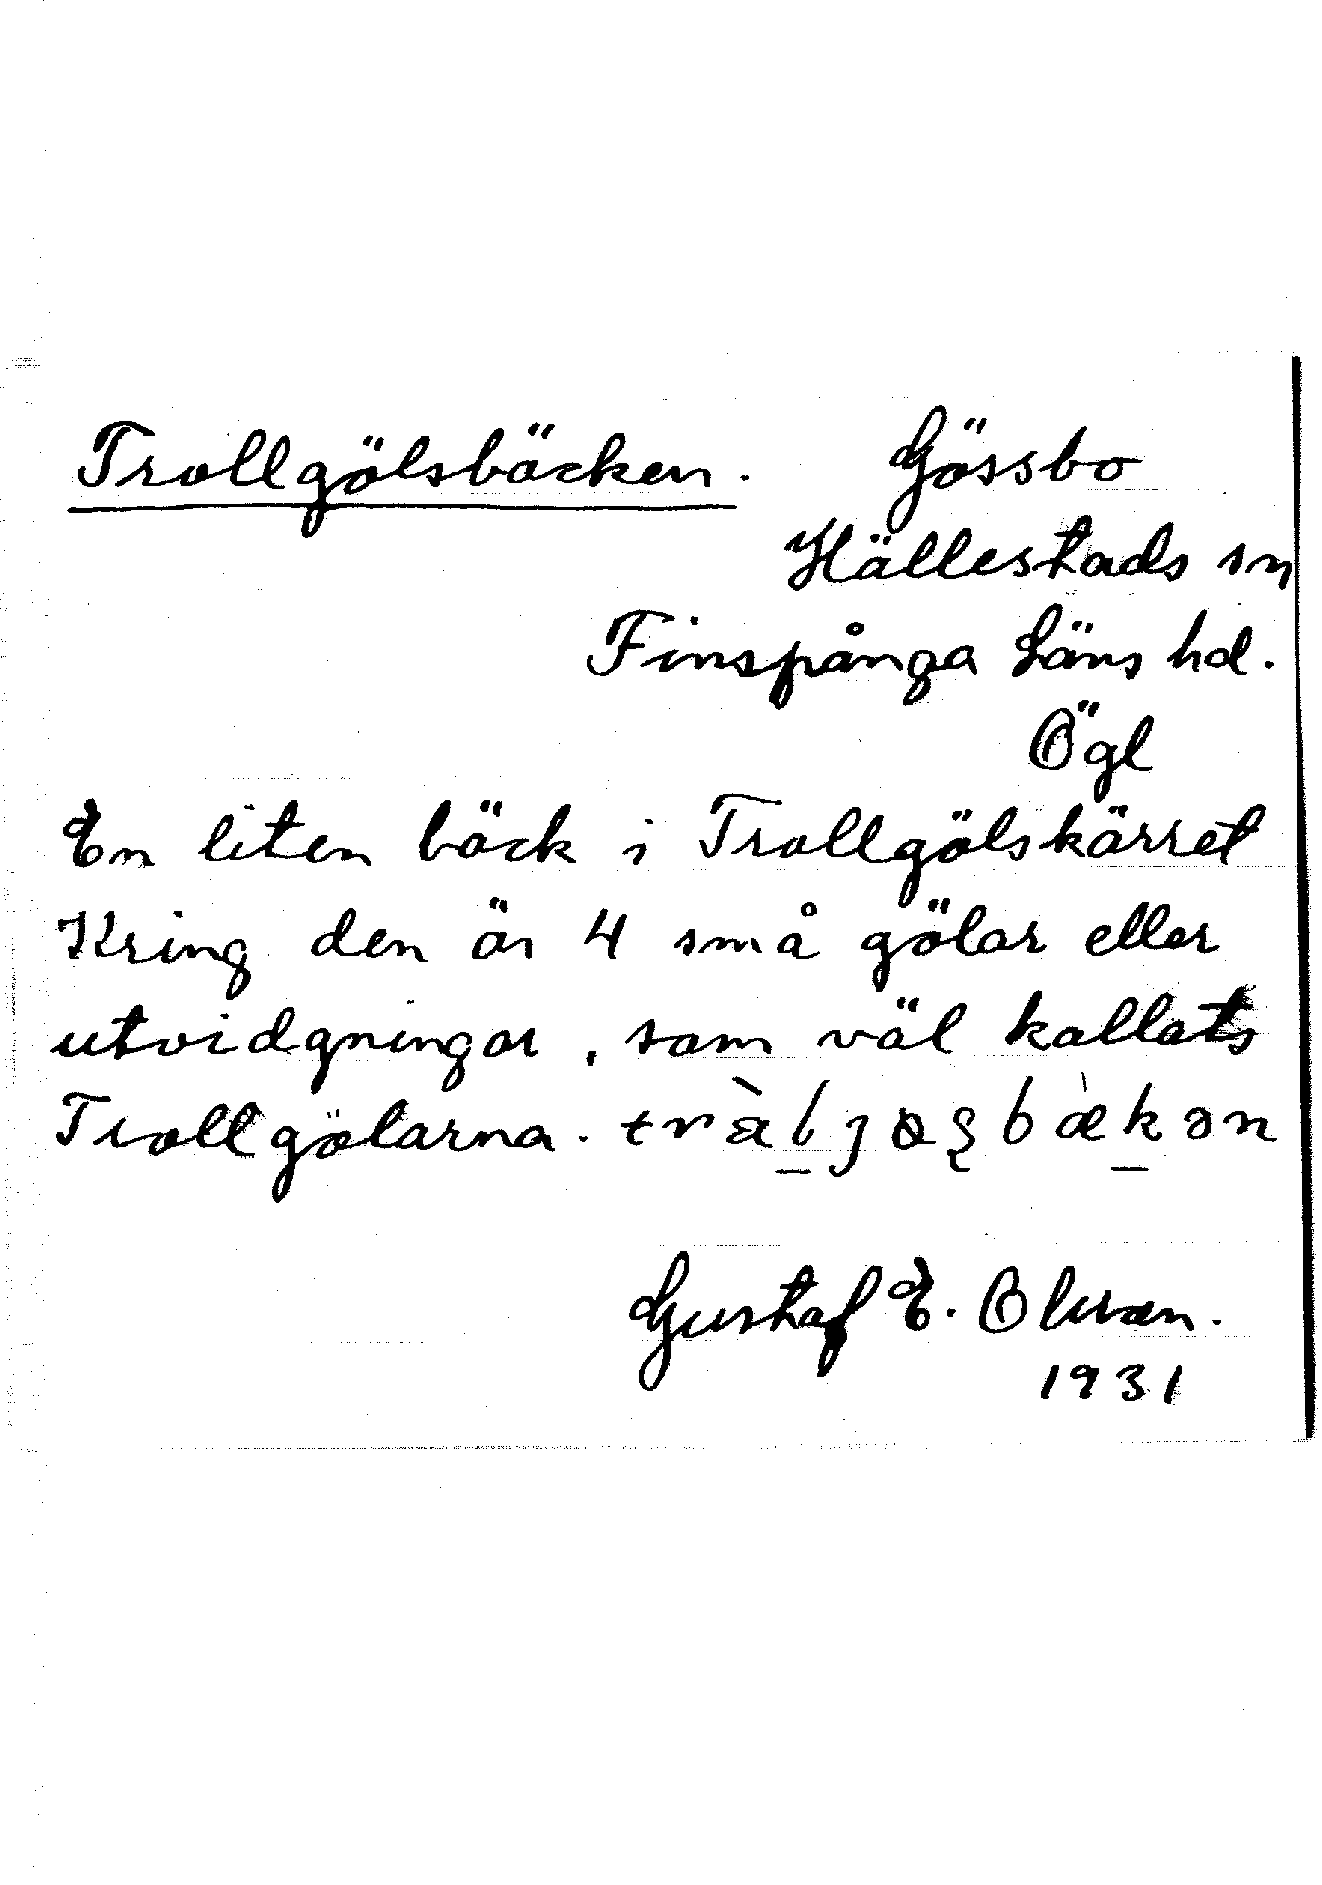 Trollgölsbäcken. Gössbo
Hällestads sn
Finspånga Läns hd.
Ögl
En liten bäck i Trollgölskärret
Kring den är 4 små gölar eller
utvidgningar, som väl kallats
Trollgölarna.
Gustaf E. Olsson.
1931